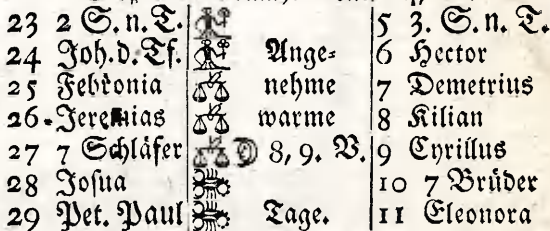 23 2 S. n. T. 5 3. S. n. T.
24 Joh. d. Tf. Ange⸗ 6 Hector
25 Febronia nehme 7 Demetrius
26. Jeremias warme 8 Kilian
27 7 Schläfer 8, 9. V. 9 Cyrillus
28 Josua 10 7 Brüder
29 Pet. Paul Tage. 11 Eleonora